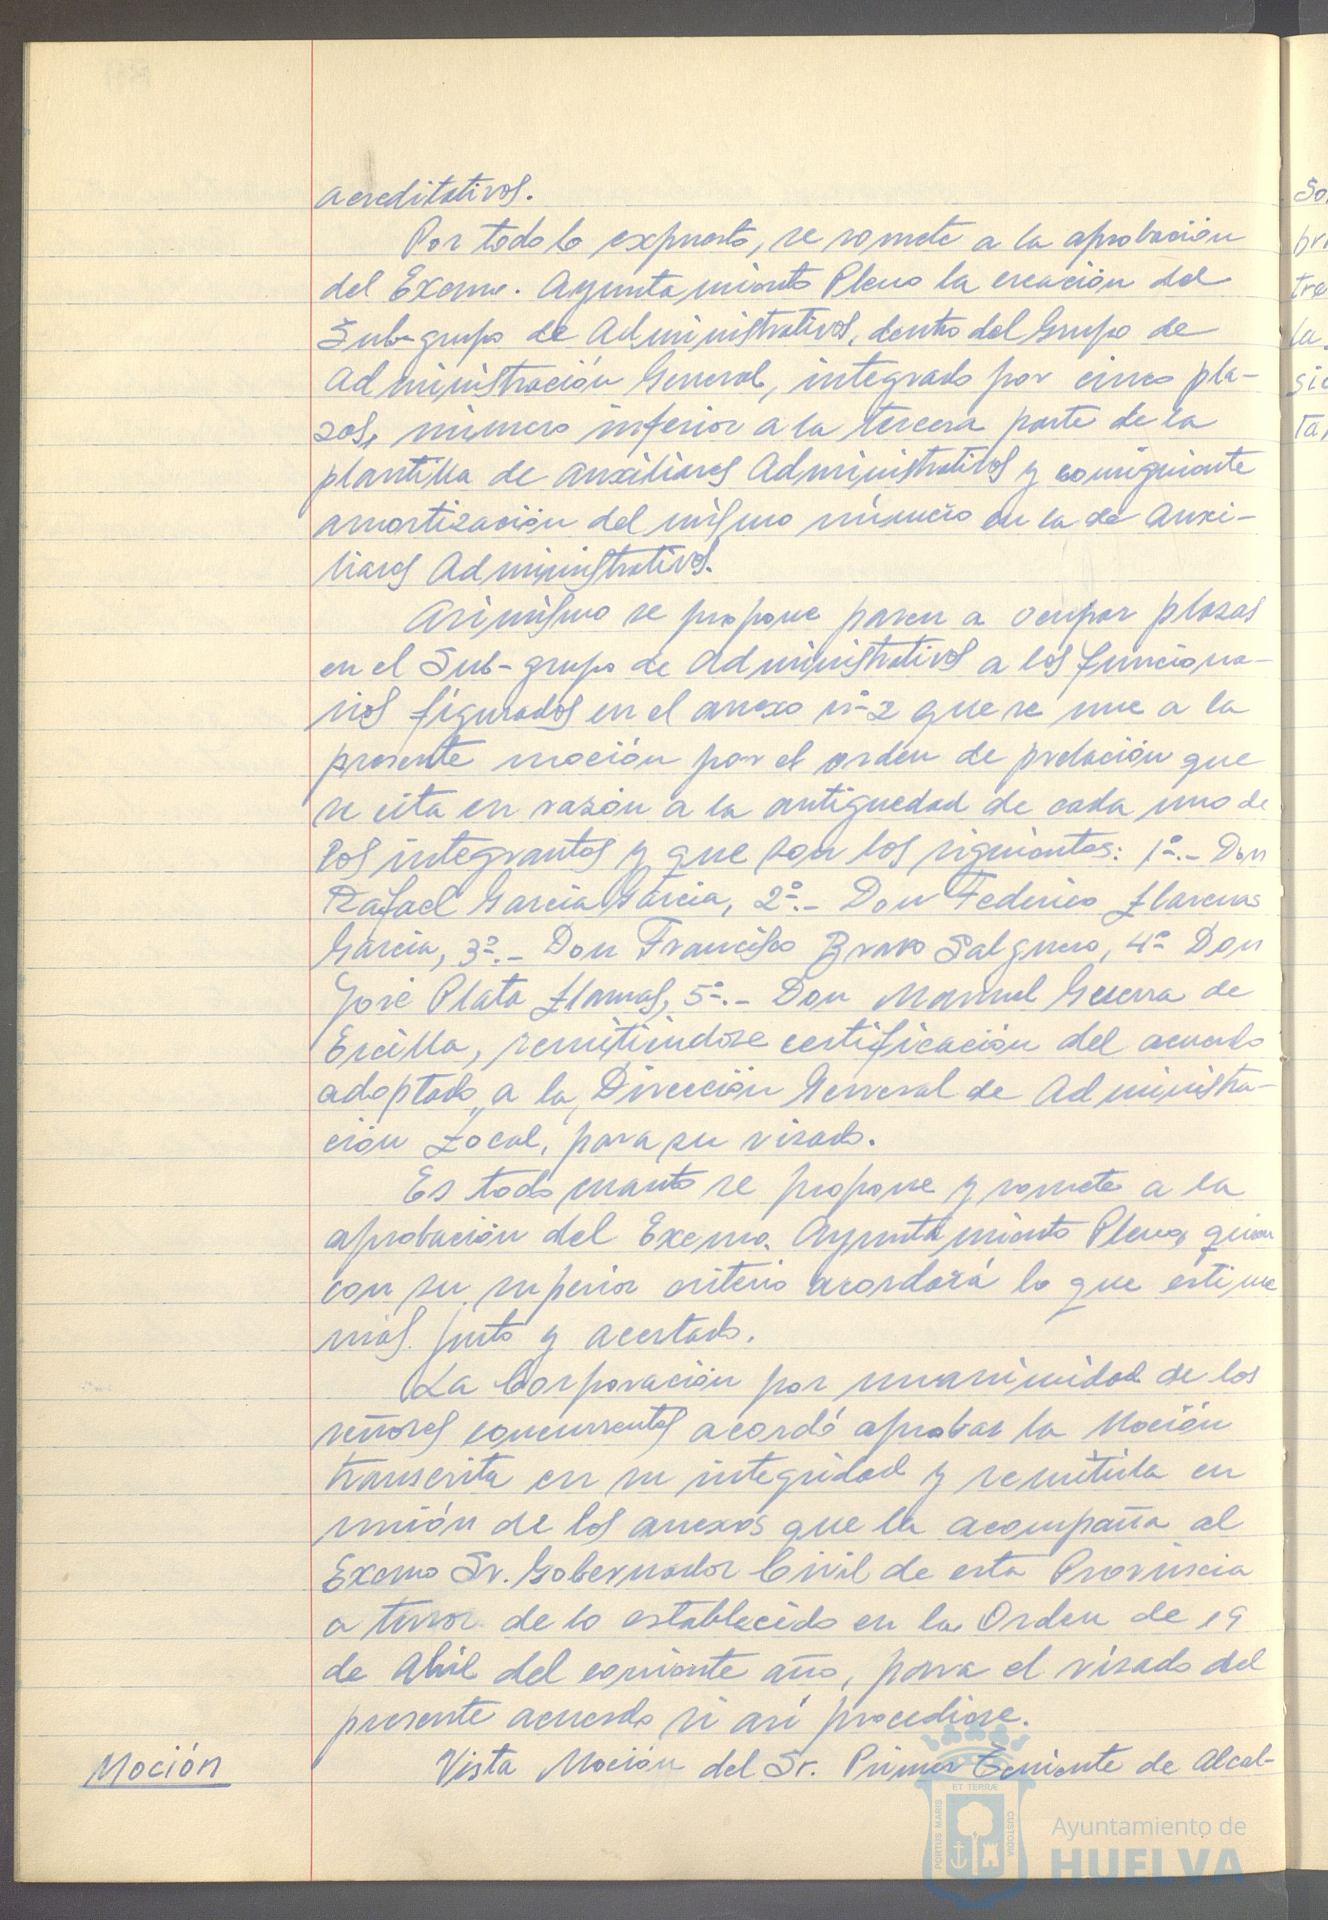 acreditativos.
Por todo lo expuesto, se somete a la aprobación
del Excmo. Ayuntamiento Pleno la creación del
Sub-grupo de Administrativos, dentro del Grupo de
Administración General, integrado por cinco pla-
zas, número inferior a la tercera parte de la
plantilla de auxiliares Administrativos y consiguiente
amortización del mismo número en la de Auxi-
liares Administrativos.
Asimismo se propone pasen a ocupar plazas
en el Sub-grupo de Administrativos a los funciona-
rios figurados en el anexo nº 2 que se une a la
presente moción por el orden de prelación que
se cita en razón a la antiguedad de cada uno de
los integrantes y que son los siguientes: 1º.- Don
Rafael García García, 2º.- Don Federico Llarenas
García, 3º.- Don Francisco Bravo Salguero, 4º Don
José Plata Llamas, 5º.- Don Manuel Guerra de
Ercilla, remitiéndose certificación del acuerdo
adoptado, a la Dirección General de Administra-
ción Local, para su visado.
Es todo cuanto se propone y somete a la
aprobación del Excmo. Ayuntamiento Pleno, quien
con su superior criterio acordará lo que estime
más justo y acertado.
La Corporación por unanimidad de los
señores concurrentes acordó aprobar la Moción
transcrita en su integridad y remitirla en
unión de los anexos que la acompaña al
Excmo Sr. Gobernador Civil de esta Provincia
a tenor de lo establecido en la Orden de 19
de Abril del corriente año, para el visado del
presente acuerdo si así procediese.
Moción
Vista Moción del Sr. Primer Teniente de Alcal-
ET TERRÆ
PORTUS MARIS
CUSTODIA
Ayuntamiento de
HUELVA